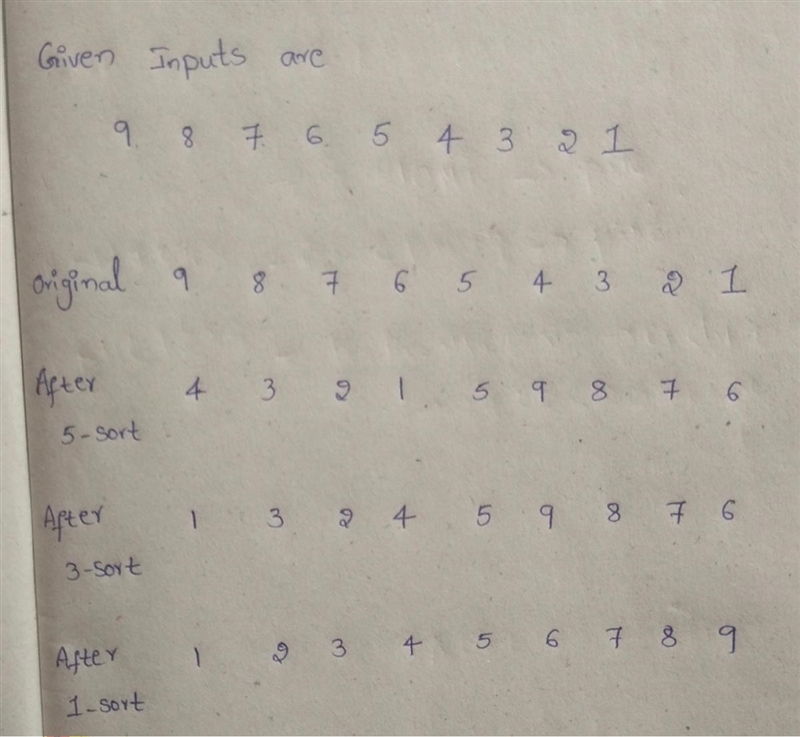 Given Inputs are
9. 8 7. 6. 5 4 3 2 1
Original 9 8 7 6 5 4 3 2 1
After 4 3 2 1 5 9 8 7 6
5-sort
After 1 3 2 4 5 9 8 7 6
3-sort
After 1 2 3 4 5 6 7 8 9
1-sort